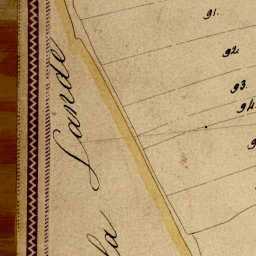 91.
92
93.
94.
9
Lande
la